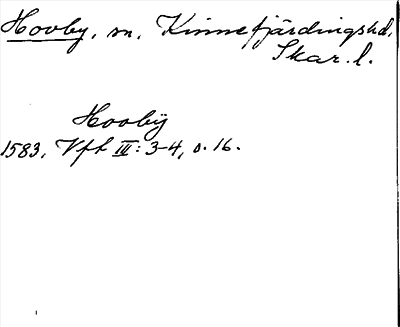 Hovby, sn, Kinnefjärdingshd,
Skar. l.
Hooby
1583, Vfh III: 3-4, s. 16.